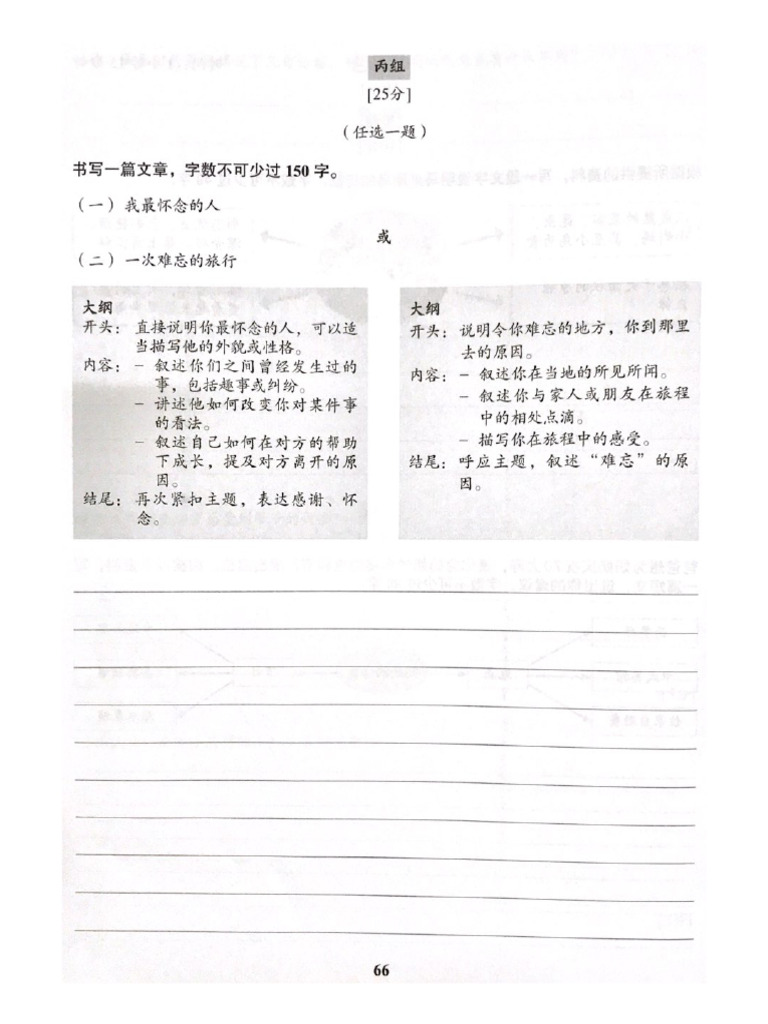 丙组
[25分]
（任选一题）
书写一篇文章，字数不可少过 150 字。
（一）我最怀念的人
或
（二）一次难忘的旅行
大纲
开头：直接说明你最怀念的人，可以适
当描写他的外貌或性格。
内容：– 叙述你们之间曾经发生过的
事，包括趣事或纠纷。
– 讲述他如何改变你对某件事
的看法。
– 叙述自己如何在对方的帮助
下成长，提及对方离开的原
因。
结尾：再次紧扣主题，表达感谢、怀
念。
大纲
开头：说明令你难忘的地方，你到那里
去的原因。
内容：– 叙述你在当地的所见所闻。
– 叙述你与家人或朋友在旅程
中的相处点滴。
– 描写你在旅程中的感受。
结尾：呼应主题，叙述“难忘”的原
因。
66